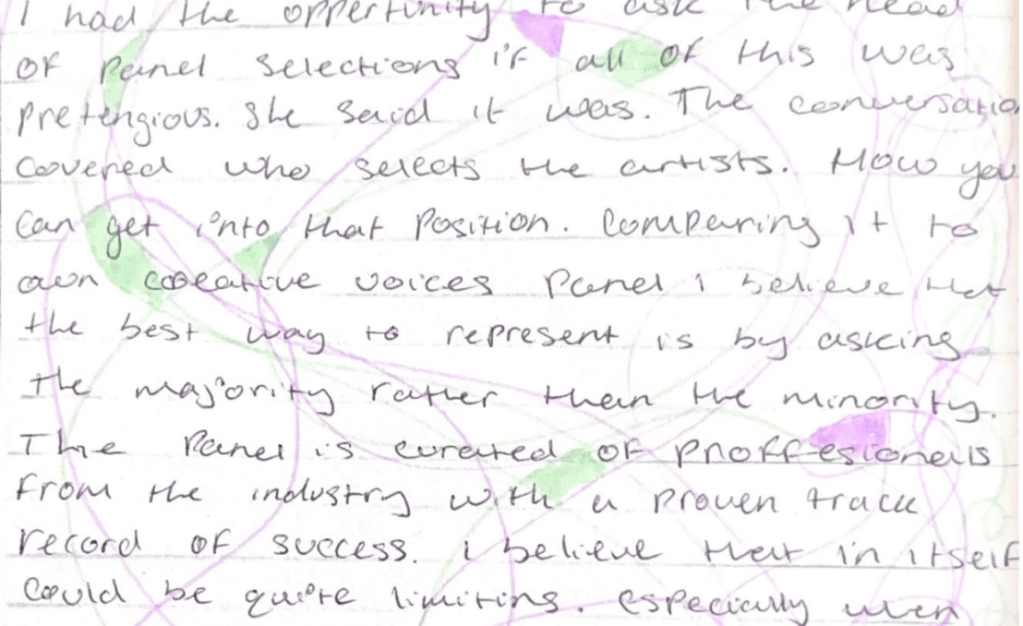 I had the opportunity to ask the head
of panel selections if all of this was
pretengious. She said it was. The conversation
covered who selects the artists. How you
can get into that position. Comparing it to
own creative voices panel i believe that
the best way to represent is by asking
the majority rather than the minority.
The panel is curated of proffesionals
from the industry with a proven track
record of success. i believe that in itself
could be quite limiting. especially when